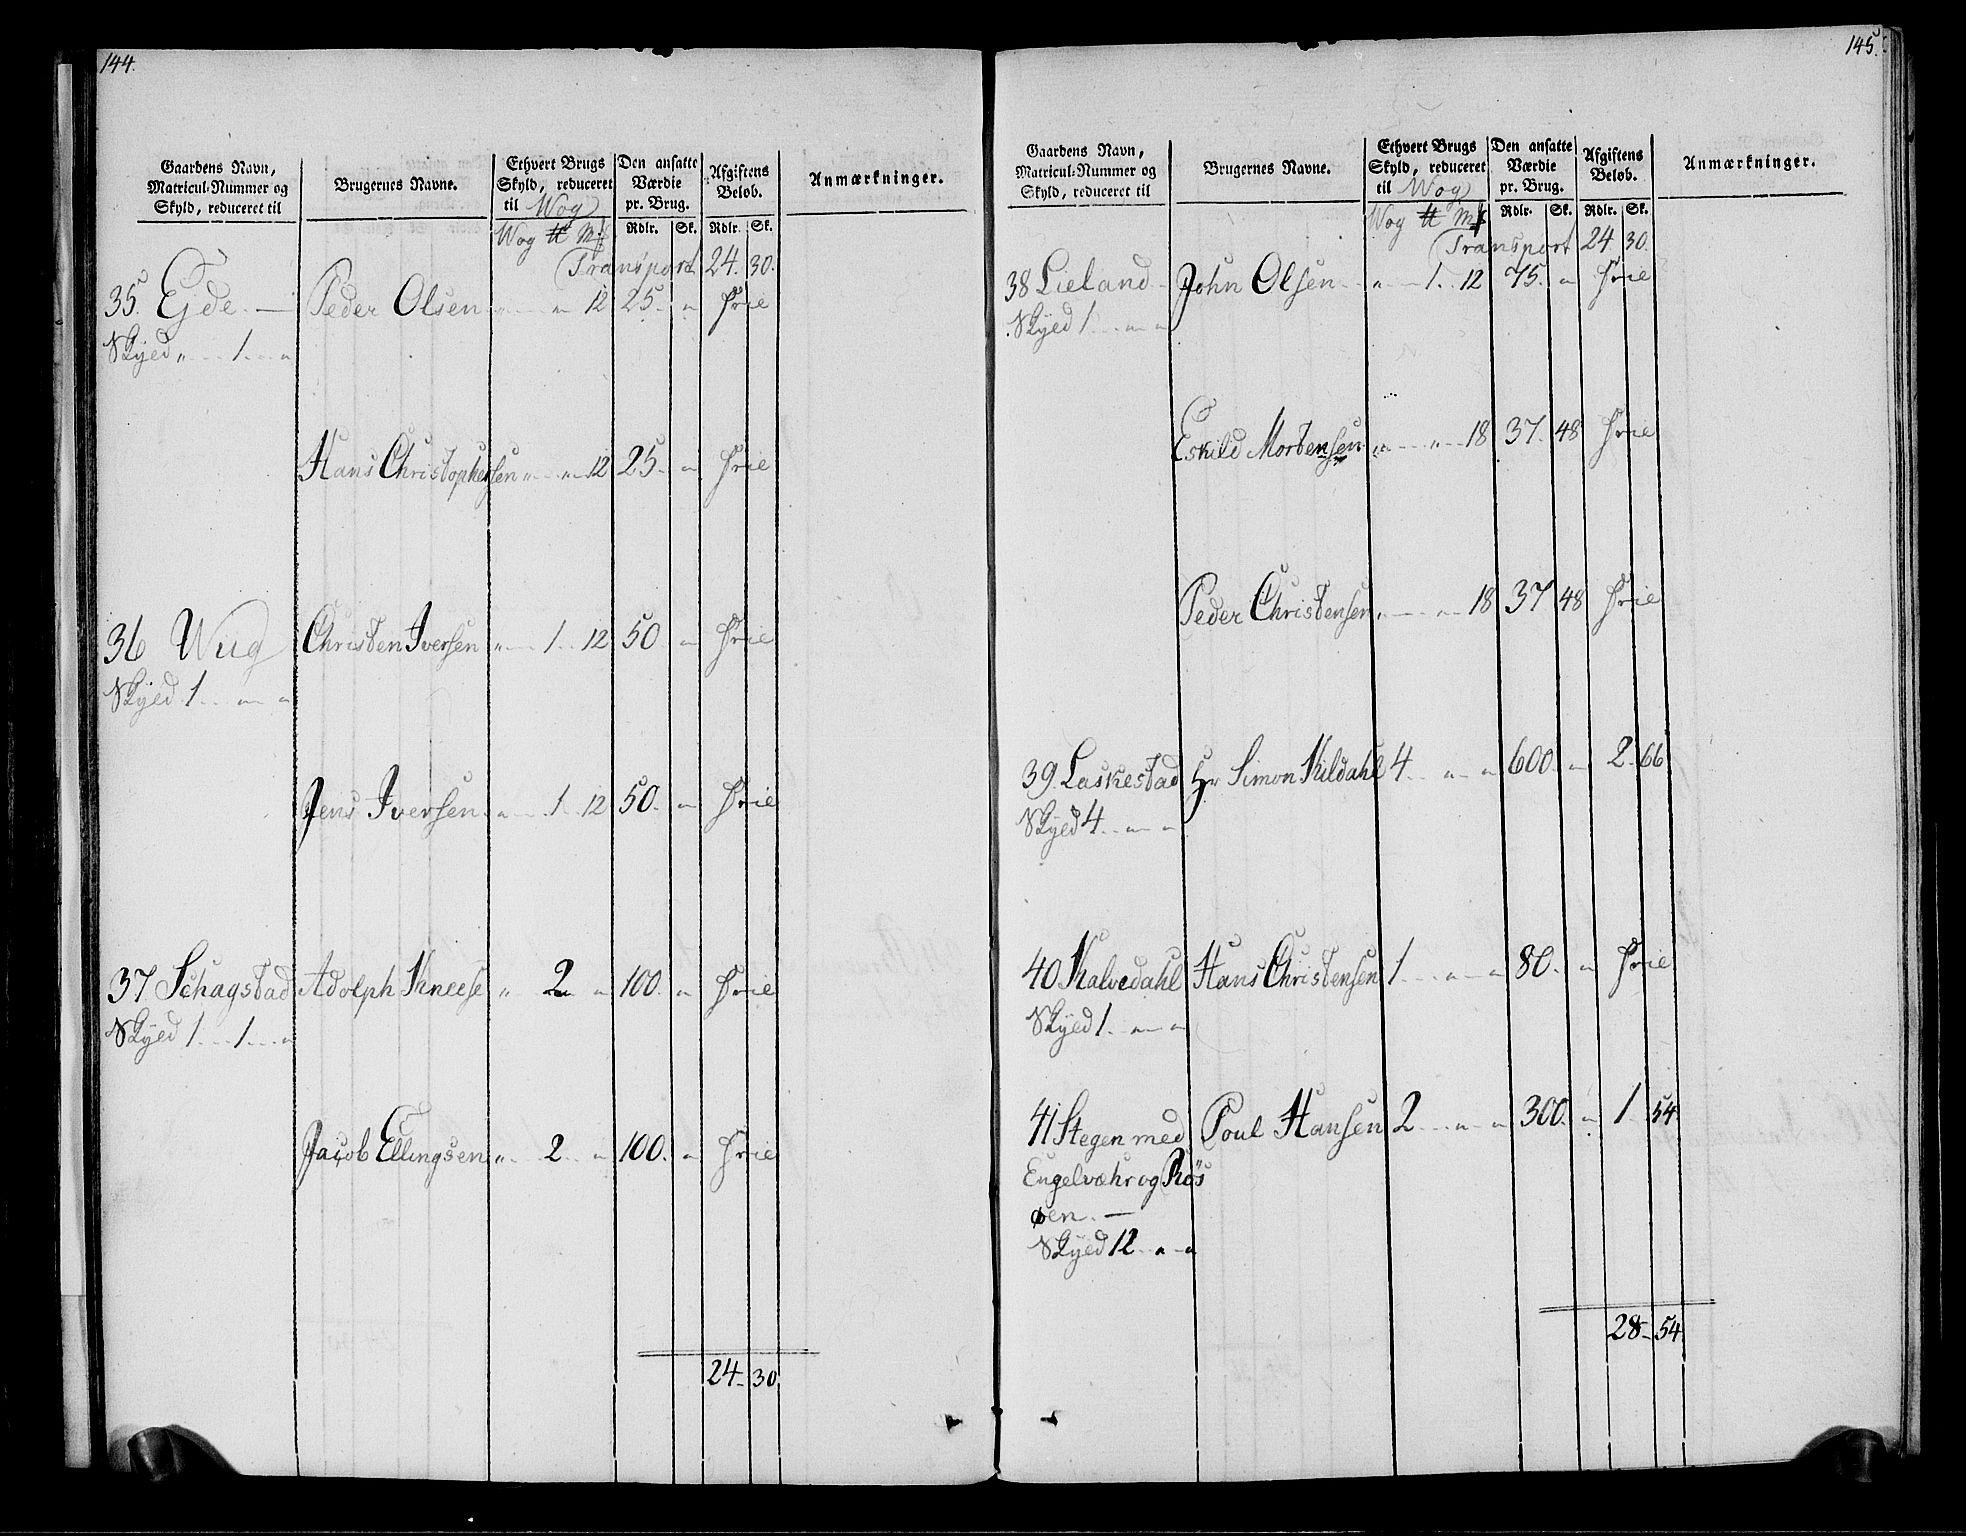 144.
Gaardens Navn, Matricul-Nummer og Skyld, reduceret til
Brugernes Navne.
Ethvert Brugs Skyld, reduceret til Wog
Den ansatte Værdie pr. Brug.
Afgiftens Beløb.
Anmærkninger.
Wog ℔ Mk Rdlr. Sk. Rdlr. Sk.
Transport 24. 30.
35. Ejde. — Peder Olsen „ „ 12 25. „ Frie
Skyld „ 1 „
Hans Christophersen „ „ 12 25. „ Frie
36 Wug Christen Iversen „ 1 12 50 „ Frie
Skyld 1 „ „
Jens Iversen „ 1 12 50. „ Frie
37 Schagstad Adolph Kneese „ 2 „ 100. „ Frie
Skyld 1 1 „
Jacob Ellingsen „ 2 „ 100. „ Frie
24 30.
145.
Gaardens Navn, Matricul-Nummer og Skyld, reduceret til
Brugernes Navne.
Ethvert Brugs Skyld, reduceret til Wog
Den ansatte Værdie pr. Brug.
Afgiftens Beløb.
Anmærkninger.
Wog ℔ Mk Rdlr. Sk. Rdlr. Sk.
Transport 24 30.
38 Lieland John Olsen „ 1 12 75. „ Frie
Skyld 1 „ „
Eskild Mortensen „ „ 18 37. 48 Frie
Peder Christensen „ „ 18 37 48 Frie
39. Laskestad Hr Simon Kildahl 4 „ „ 600. „ 2 66
Skyld 4 „ „
40 Kalvedahl Hans Christensen 1 „ „ 80. „ Frie
Skyld 1 „ „
41 Stegen med Poul Hansen 2 „ „ 300. „ 1 54
Engelvæhr og Røs
øen. —
Skyld 12 „ „
28 54